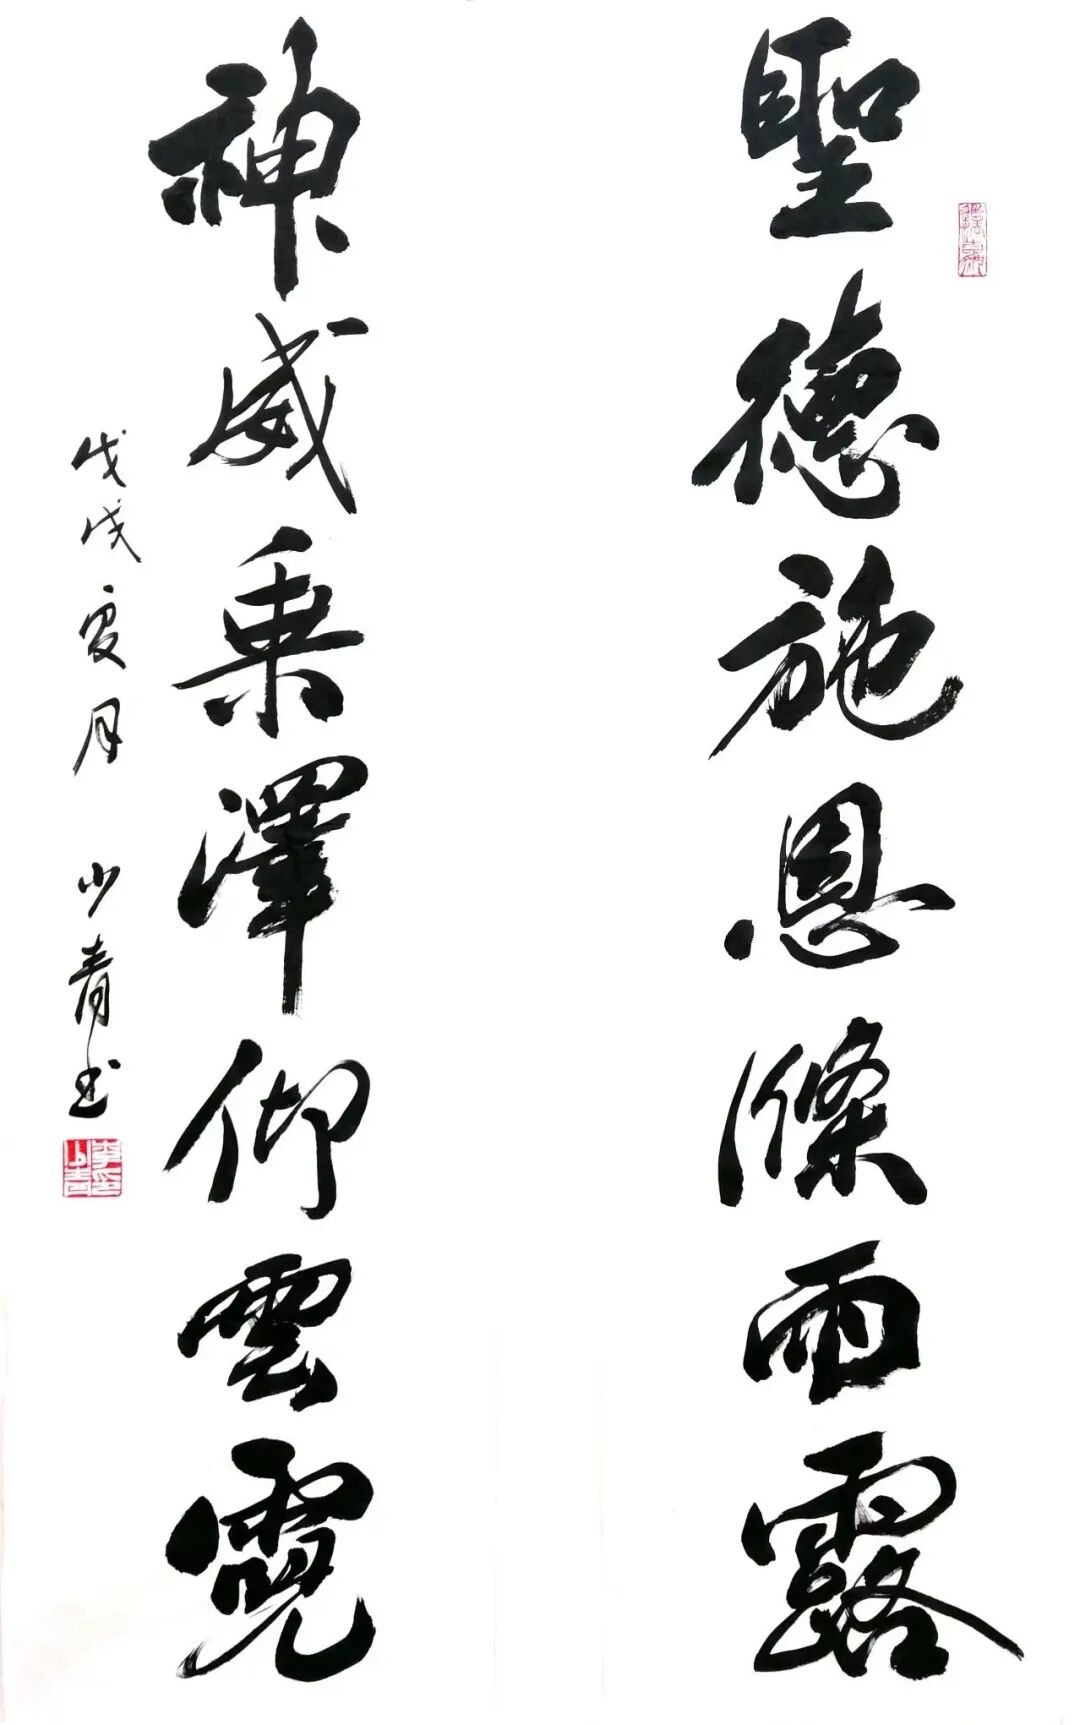 聖德施恩滌雨露
神威乘澤仰雲霓
戊戌夏月 少青书